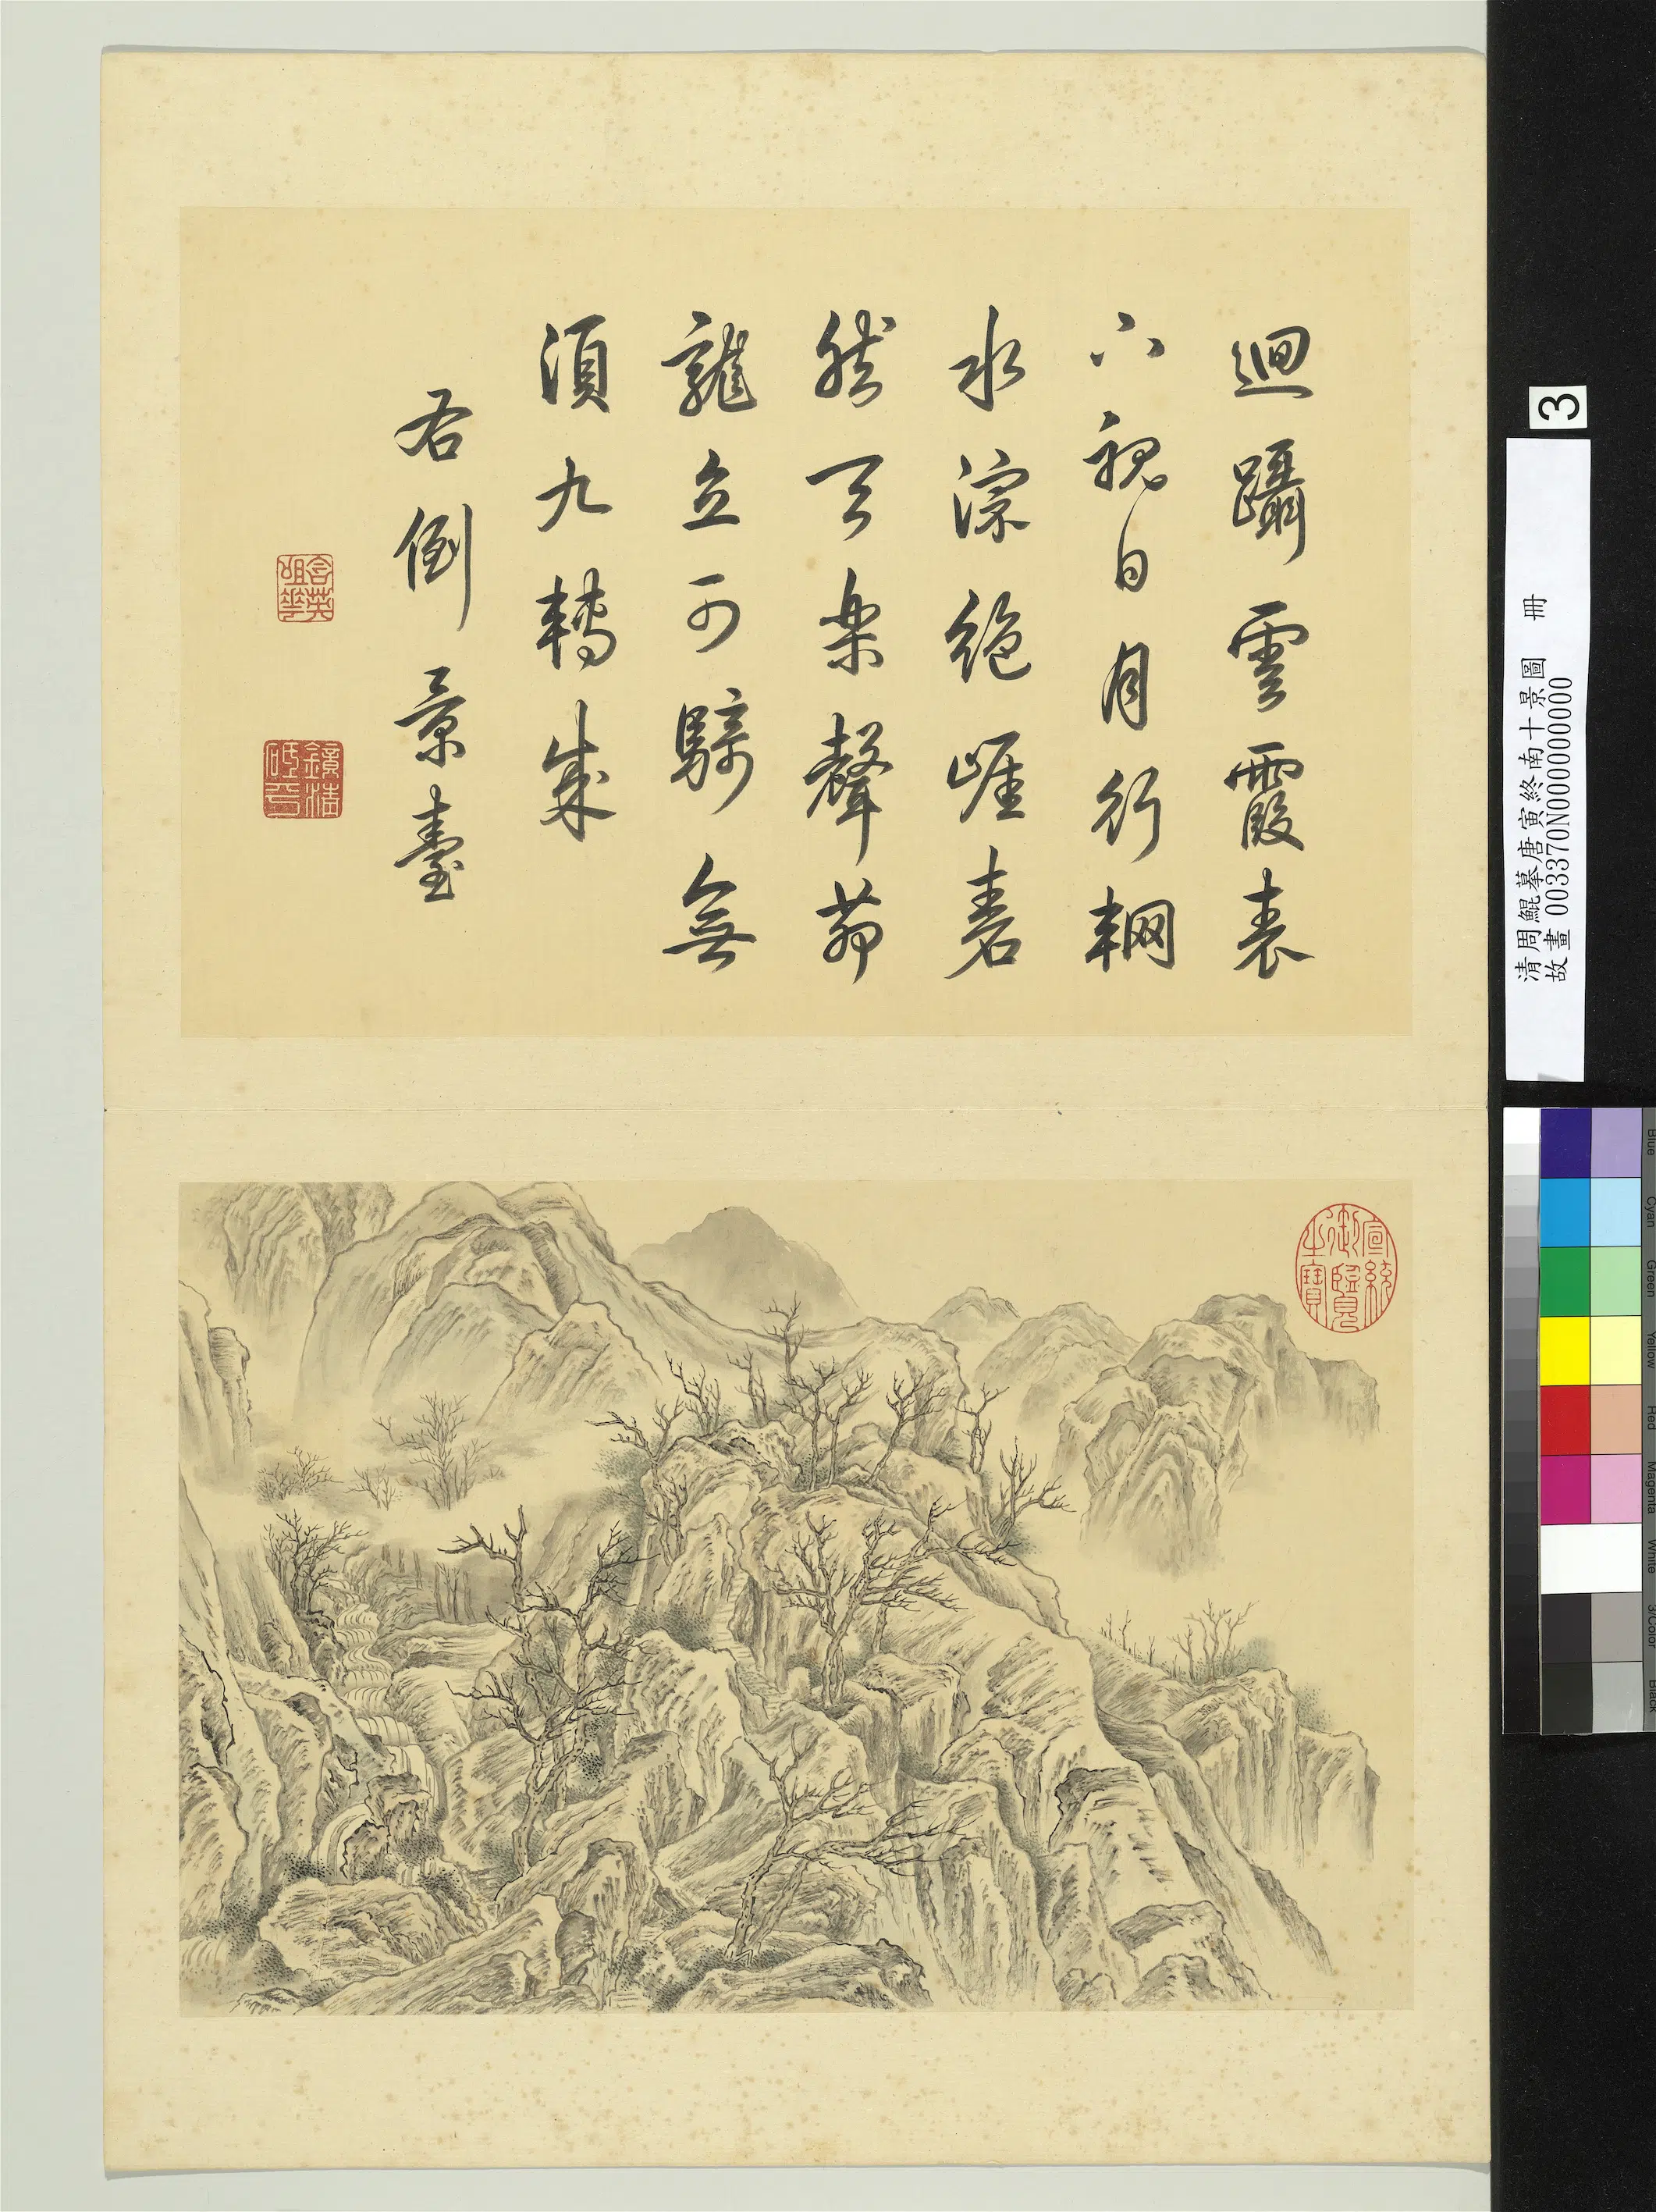 迴躡雲霞表
下視日月行輞
水淙絕崖砉
然天樂聲茆
龍立可騎無
須九轉成
右倒景臺
含英咀華
鏡清砥平
宣統御覽之寶
3
清周鯤摹唐寅終南十景圖 冊
故畫 003370N000000000
Blue
Cyan
Green
Yellow
Red
Magenta
White
3/Color
Black